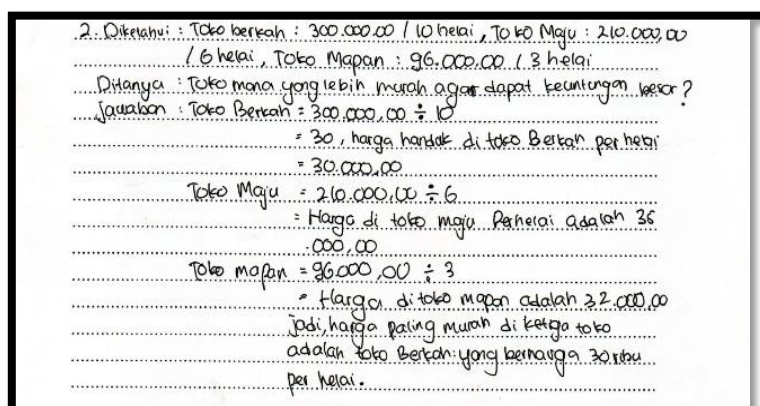 2. Diketahui : Toko berkah : 300.000.00 / 10 helai, Toko Maju : 210.000,00
/ 6 helai, Toko Mapan : 96.000.00 / 3 helai
Ditanya : Toko mana yong lebih murah agar dapat keuntungan besar ?
Jawaban : Toko Berkah = 300.000,00 ÷ 10
= 30, harga handuk di toko Berkah per helai
= 30.000,00
Toko Maju = 210.000,00 ÷ 6
= Harga di toko maju Perhelai adalah 35
.000,00
Toko mapan = 96.000,00 ÷ 3
= Harga di toko mapan adalah 32.000,00
jadi, harga paling murah di ketiga toko
adalah toko Berkah yang berharga 30 ribu
per helai.